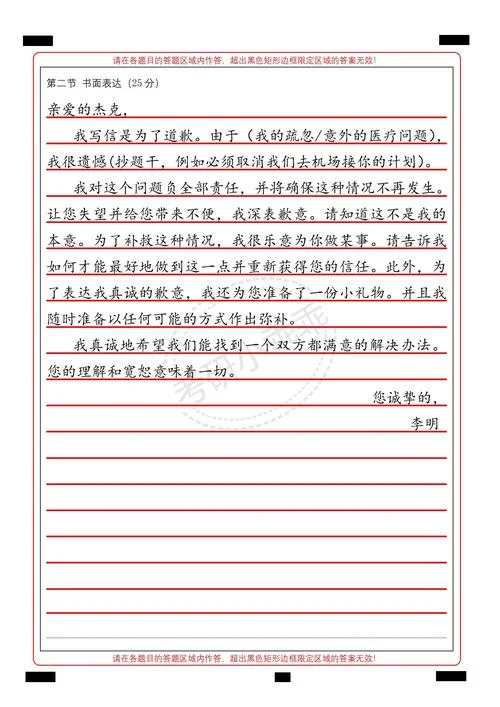 请在各题目的答题区域内作答，超出黑色矩形边框限定区域的答案无效!
第二节 书面表达（25 分）
亲爱的杰克，
我写信是为了道歉。由于（我的疏忽/意外的医疗问题），
我很遗憾(抄题干，例如必须取消我们去机场接你的计划)。
我对这个问题负全部责任，并将确保这种情况不再发生。
让您失望并给您带来不便，我深表歉意。请知道这不是我的
本意。为了补救这种情况，我很乐意为你做某事。请告诉我
如何才能最好地做到这一点并重新获得您的信任。此外，为
了表达我真诚的歉意，我还为您准备了一份小礼物。并且我
随时准备以任何可能的方式作出弥补。
我真诚地希望我们能找到一个双方都满意的解决办法。
您的理解和宽恕意味着一切。
您诚挚的，
李明
考研小乖乖
请在各题目的答题区域内作答，超出黑色矩形边框限定区域的答案无效!